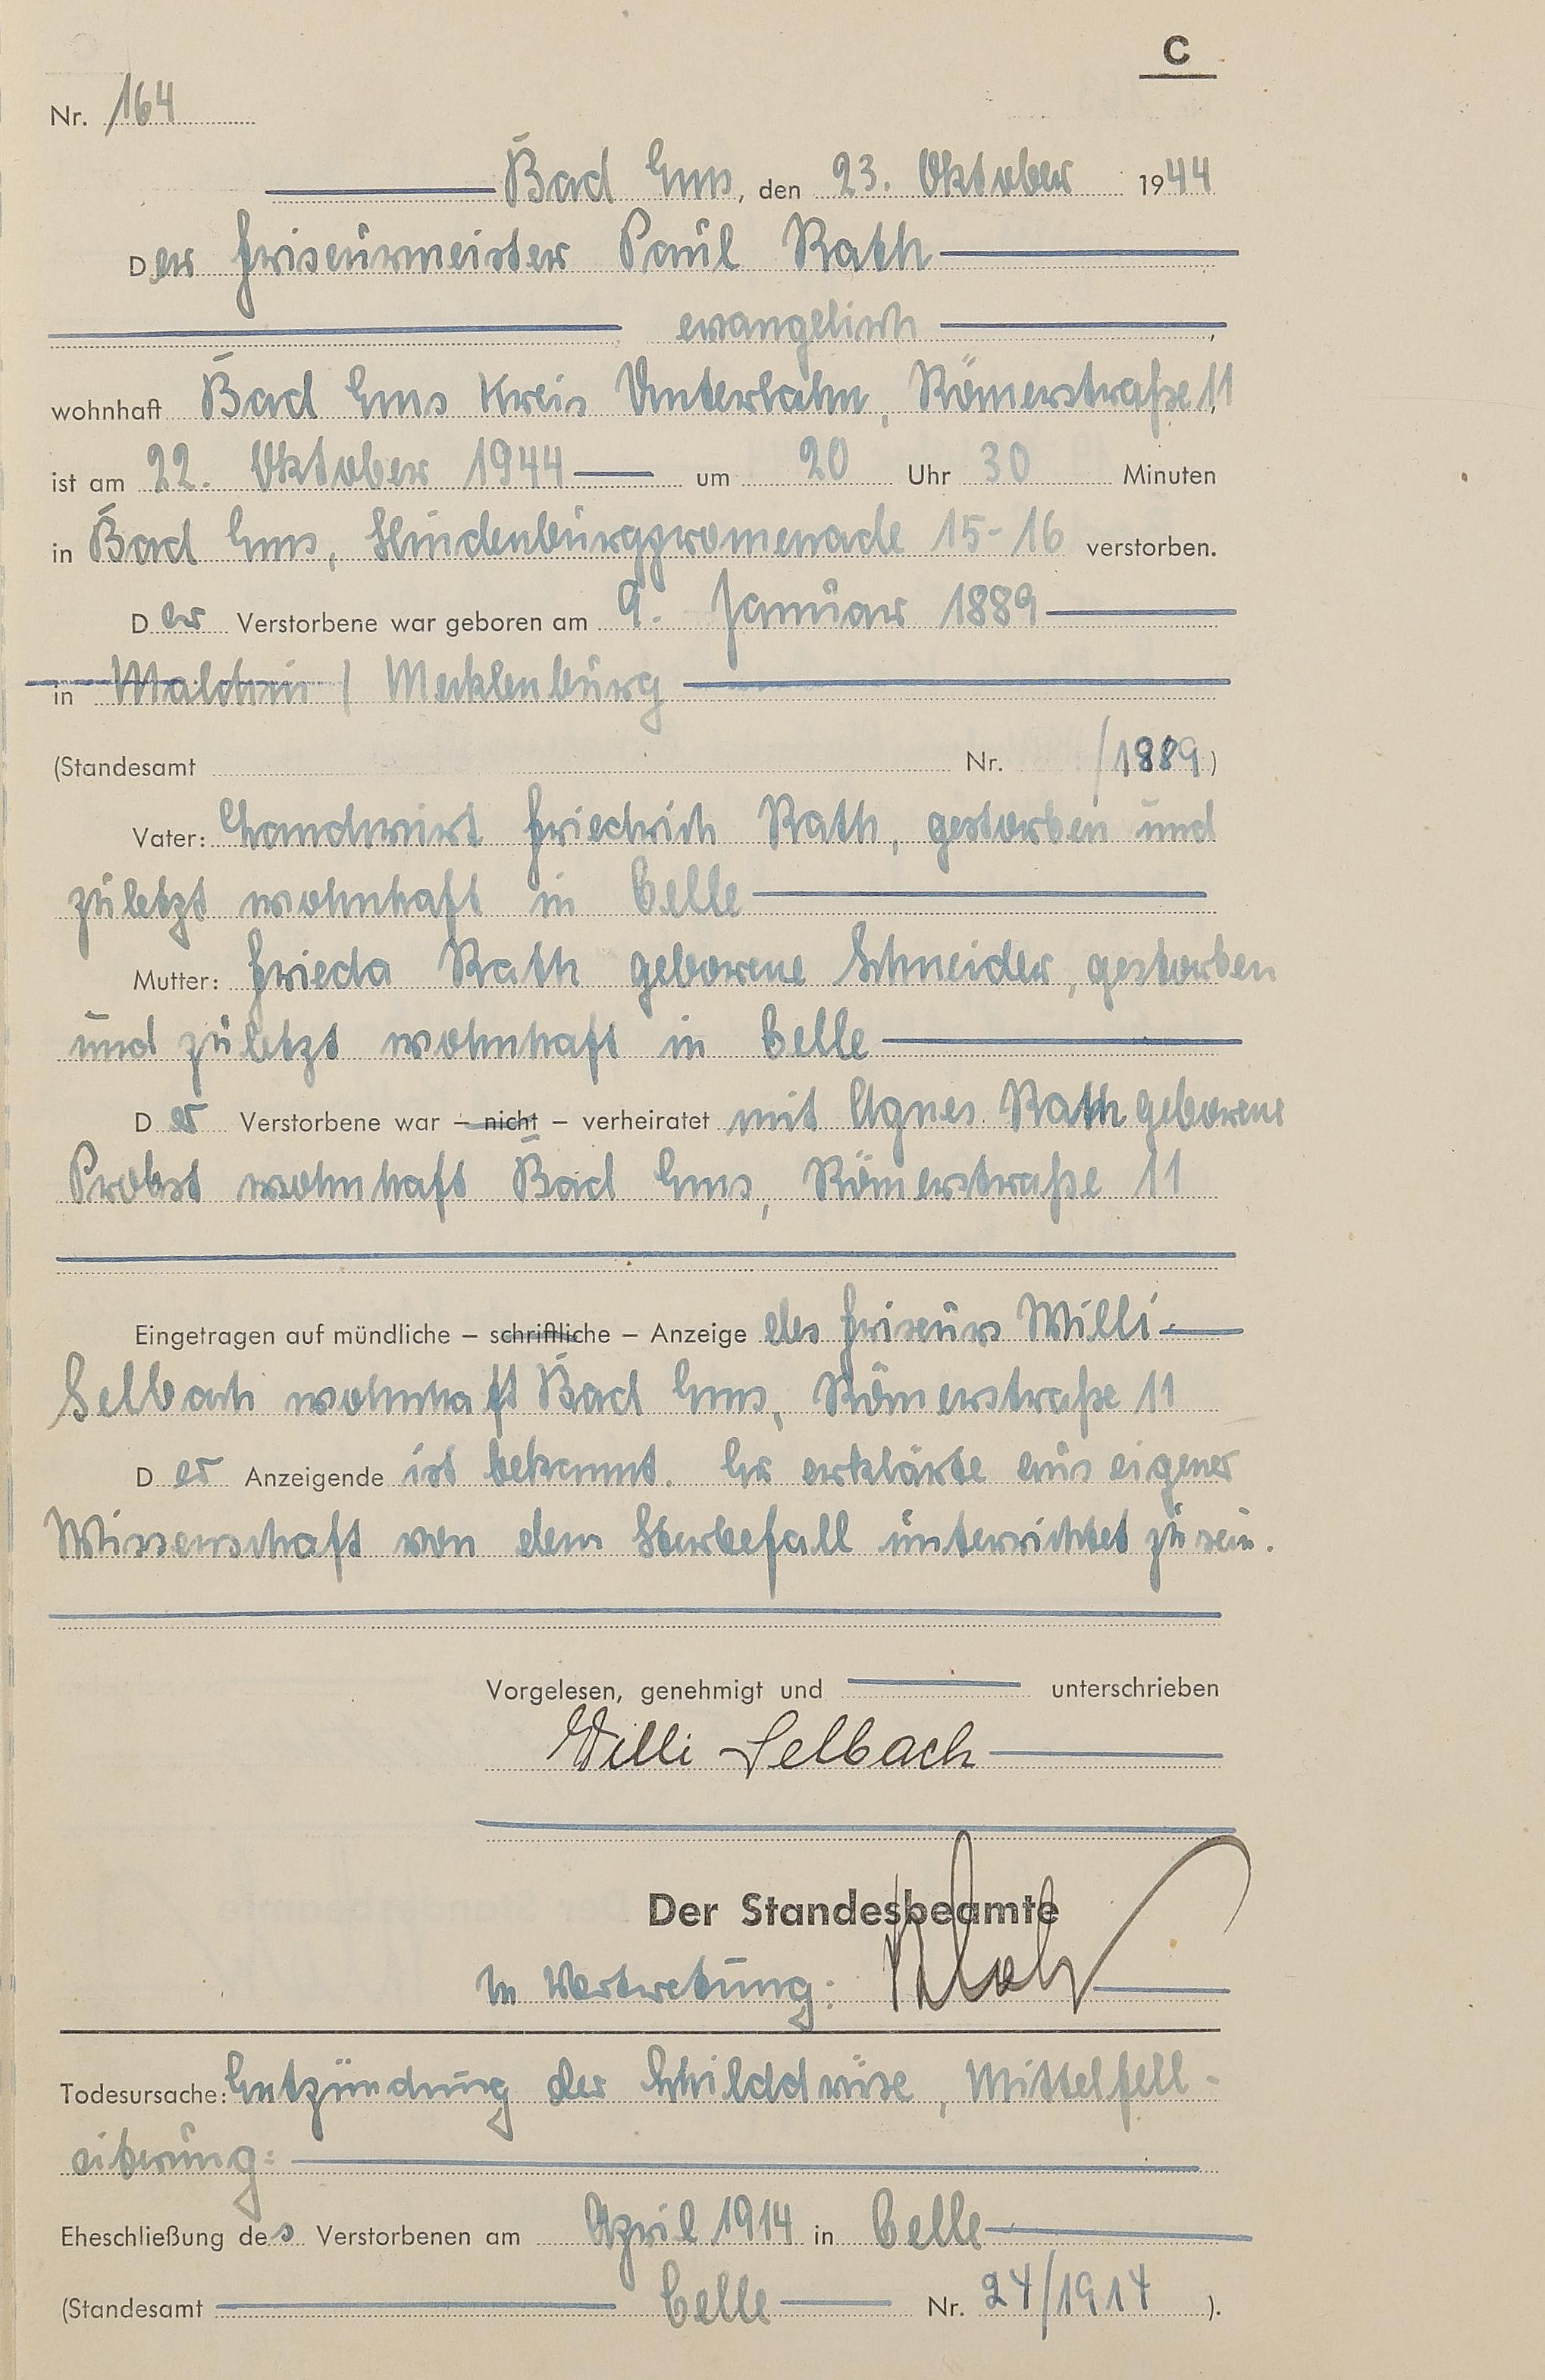 C
Nr. 164
Bad Ems, den 23. Oktober 1944
Der Friseurmeister Paul Rath
evangelisch,
wohnhaft Bad Ems Kreis Unterlahn, Römerstraße 11,
ist am 22. Oktober 1944 um 20 Uhr 30 Minuten
in Bad Ems, Hindenburgpromenade 15-16 verstorben.
Der Verstorbene war geboren am 9. Januar 1889
in Malchin / Mecklenburg
(Standesamt Nr. /1889)
Vater: Landwirt Friedrich Rath, gestorben und
zuletzt wohnhaft in Celle
Mutter: Frieda Rath geborene Schneider, gestorben
und zuletzt wohnhaft in Celle
Der Verstorbene war – nicht – verheiratet mit Agnes Rath geborene
Probst wohnhaft Bad Ems, Römerstraße 11
Eingetragen auf mündliche – schriftliche – Anzeige des Friseurs Willi
Selbach wohnhaft Bad Ems, Römerstraße 11
Der Anzeigende ist bekannt. Er erklärte aus eigener
Wissenschaft von dem Sterbefall unterrichtet zu sein.
Vorgelesen, genehmigt und unterschrieben
Willi Selbach
Der Standesbeamte
In Vertretung:
Todesursache: Entzündung der Schilddrüse, Mittelfell-
eiterung:
Eheschließung des Verstorbenen am April 1914 in Celle
(Standesamt Celle Nr. 24/1914 ).